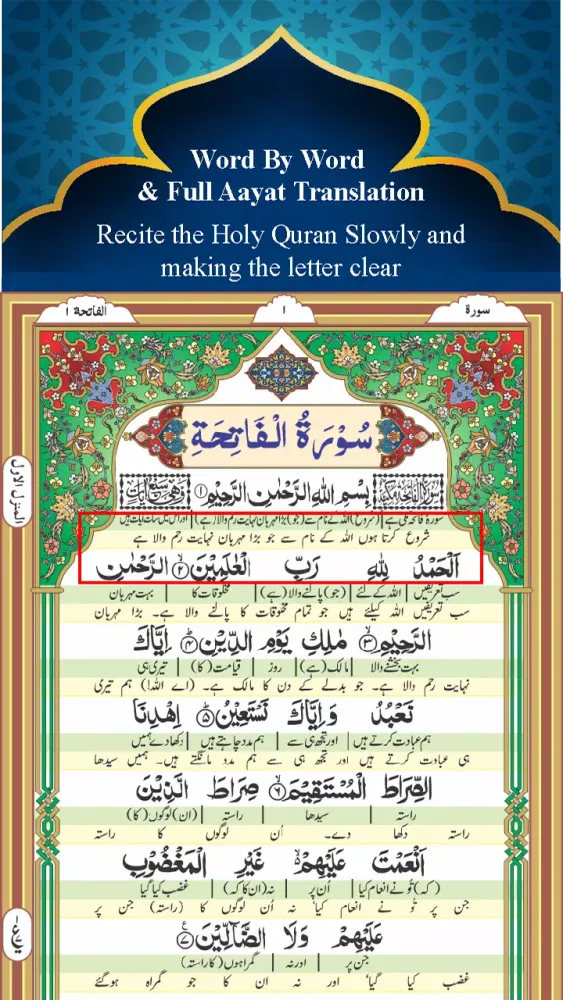 Word By Word
& Full Aayat Translation
Recite the Holy Quran Slowly and
making the letter clear
سورة
١
الفاتحة ١
سُوْرَةُ الْفَاتِحَةِ
بِسْمِ اللهِ الرَّحْمٰنِ الرَّحِيْمِ ١
سورۃ فاتحہ مکی ہے | (شروع) اللہ کے نام سے (جو) بڑا مہربان نہایت رحم والا (ہے) | اور اس میں سات آیات ہیں
شروع کرتا ہوں اللہ کے نام سے جو بڑا مہربان نہایت رحم والا ہے
اَلْحَمْدُ لِلّٰهِ رَبِّ الْعٰلَمِيْنَ ٢ الرَّحْمٰنِ
سب تعریفیں | اللہ کے لئے | (جو) پالنے والا (ہے) | مخلوقات کا | بہت مہربان
سب تعریفیں اللہ کیلئے ہیں جو تمام مخلوقات کا پالنے والا ہے۔ بڑا مہربان
الرَّحِيْمِ ٣ مٰلِكِ يَوْمِ الدِّيْنِ ٤ اِيَّاكَ
بہت بخشنے والا | مالک (ہے) | روز | قیامت (کا) | تیری ہی
نہایت رحم والا ہے۔ جو بدلے کے دن کا مالک ہے۔ (اے اللہ!) ہم تیری
نَعْبُدُ وَاِيَّاكَ نَسْتَعِيْنُ ٥ اِهْدِنَا
ہم عبادت کرتے ہیں | اور تجھ ہی سے | ہم مدد چاہتے ہیں | دکھا دے ہمیں
ہی عبادت کرتے ہیں اور تجھ ہی سے ہم مدد مانگتے ہیں۔ ہمیں سیدھا
الصِّرَاطَ الْمُسْتَقِيْمَ ٦ صِرَاطَ الَّذِيْنَ
راستہ | سیدھا | راستہ | (ان) لوگوں (کا)
راستہ دکھا دے۔ اُن لوگوں کا راستہ
اَنْعَمْتَ عَلَيْهِمْ غَيْرِ الْمَغْضُوْبِ
(کہ) تُو نے انعام کیا | اُن پر | نہ (ان کا کہ) | غضب کیا گیا
جن پر تُو نے انعام کیا نہ اُن لوگوں کا (راستہ) جن پر
عَلَيْهِمْ وَلَا الضَّآلِّيْنَ ٧
جن پر | اور نہ | گمراہوں (کا راستہ)
غضب کیا گیا اور نہ ان کا جو گمراہ ہوگئے
المنزل الاول